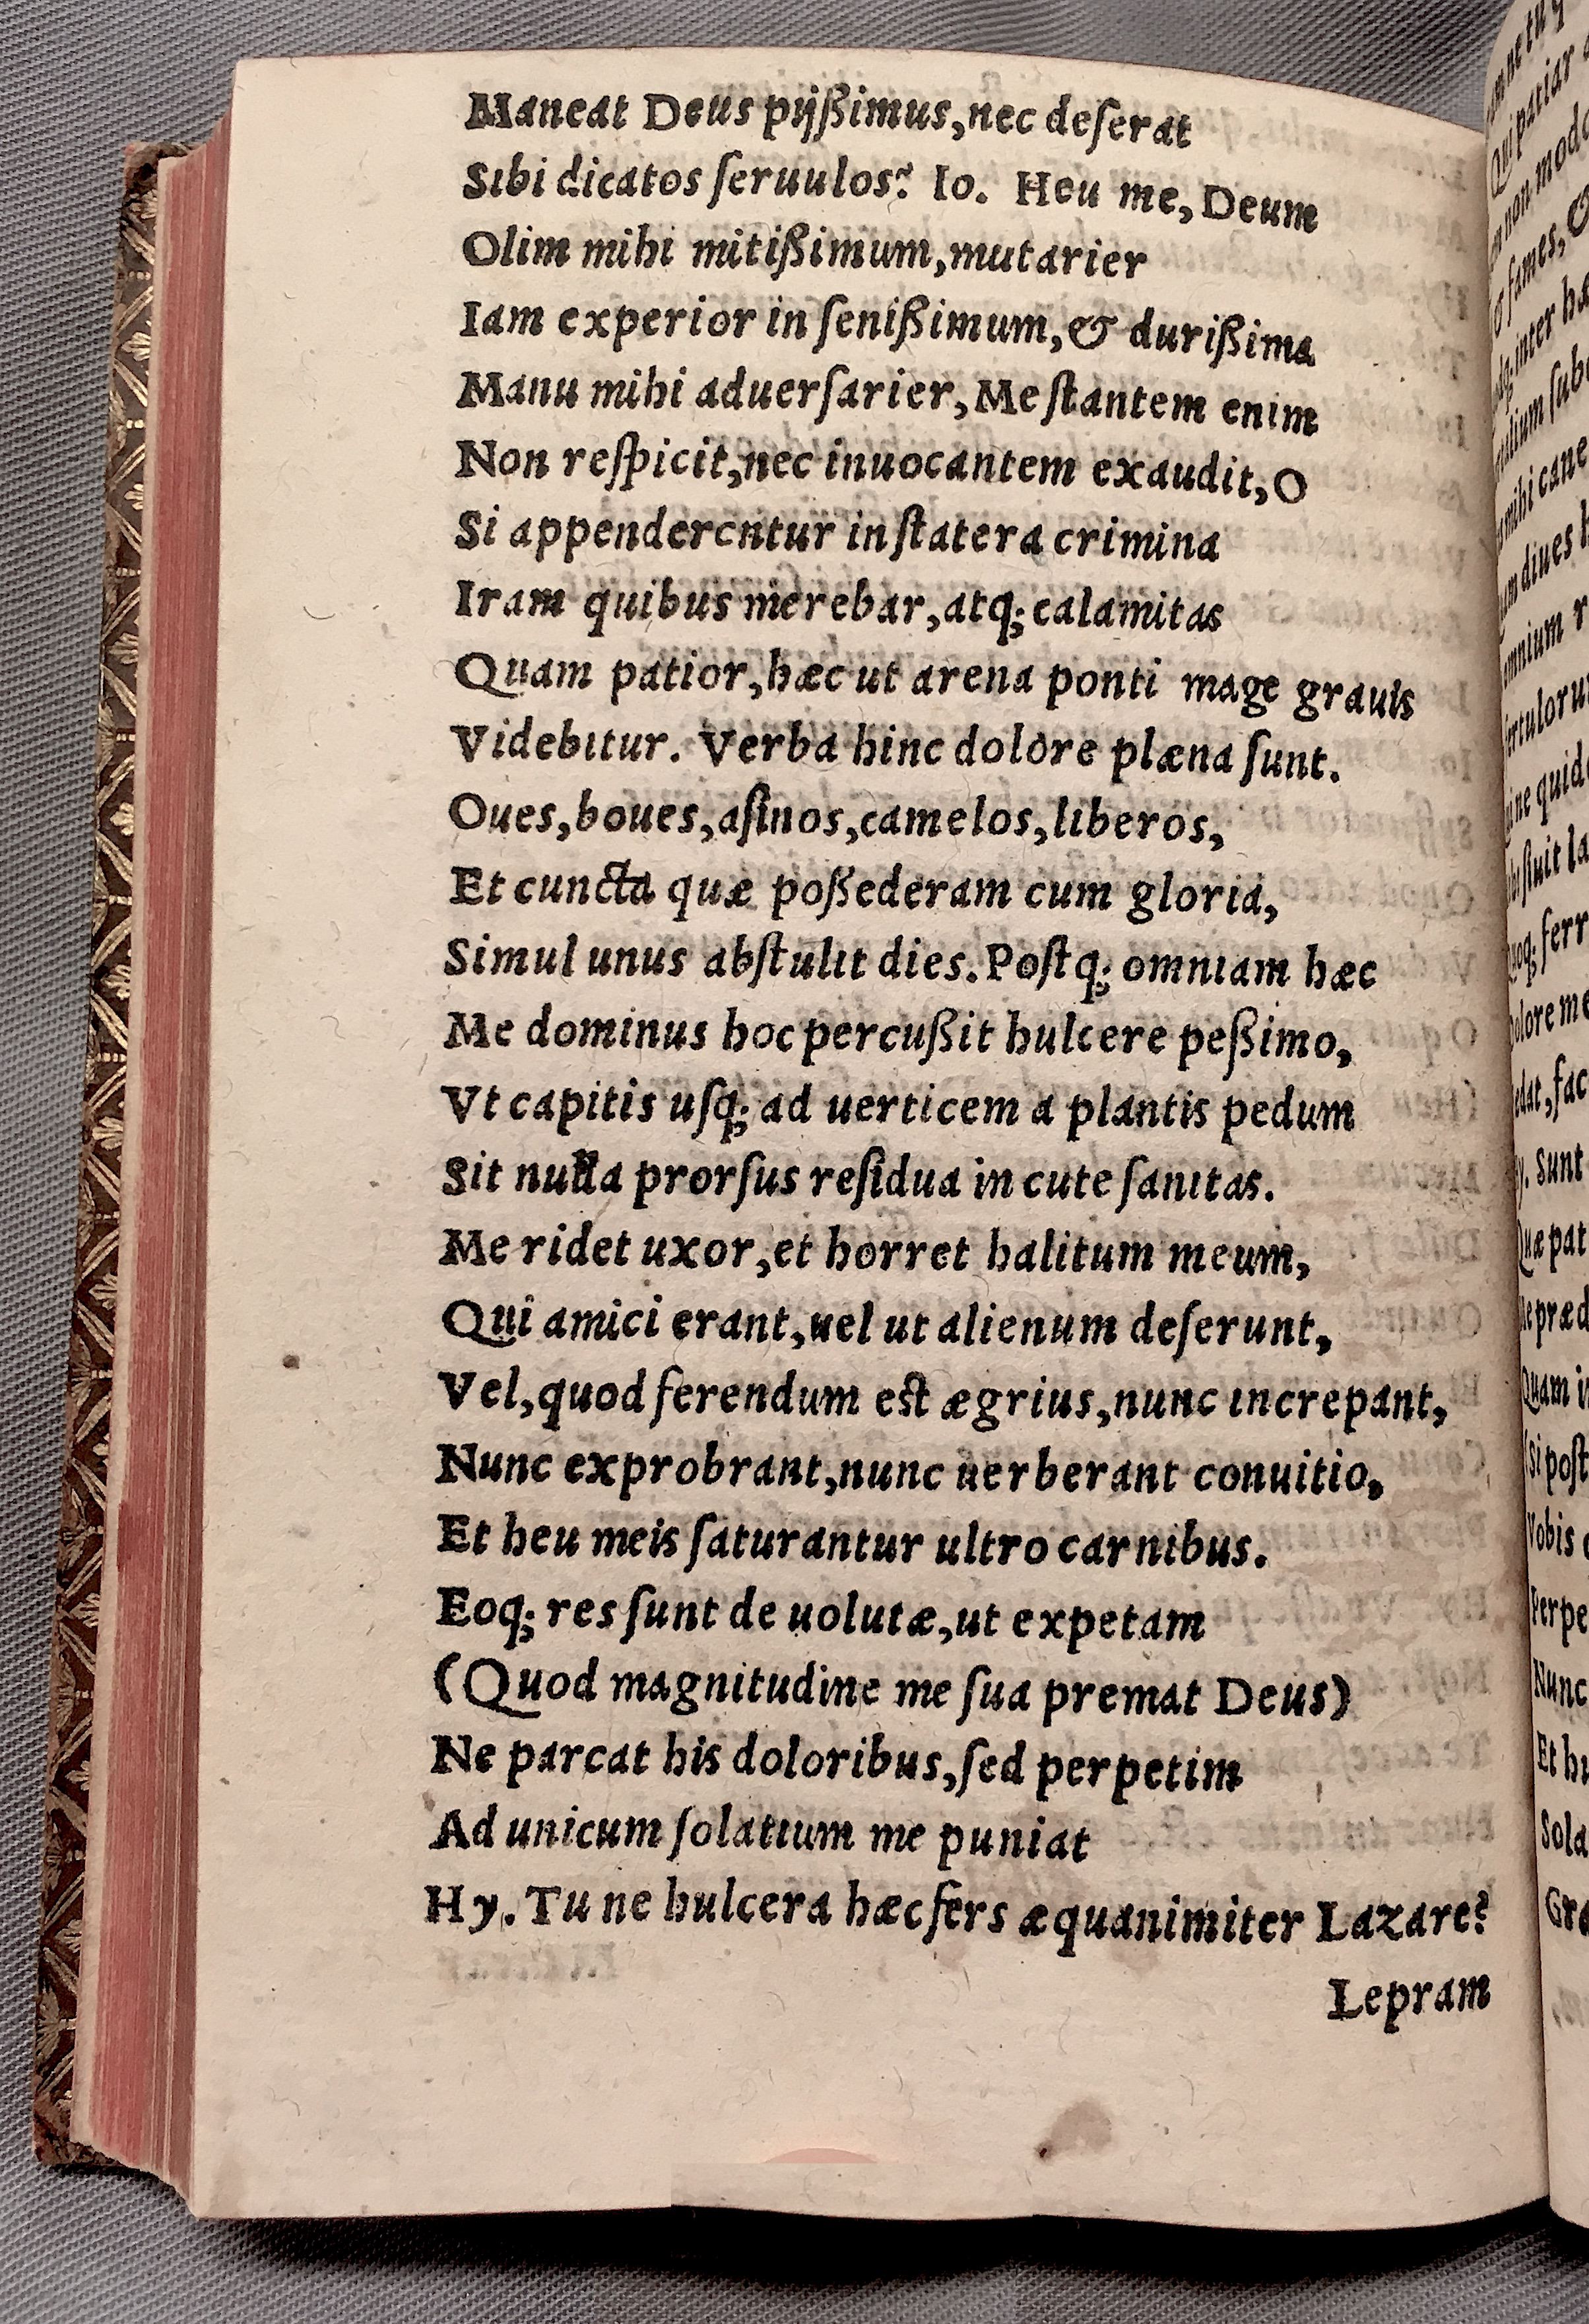 Maneat Deus pijßimus, nec deſerat
Sibi dicatos ſeruulos? Io. Heu me, Deum
Olim mihi mitißimum, mutarier
Iam experior in ſenißimum, & durißima
Manu mihi aduerſarier, Me ſtantem enim
Non reſpicit, nec inuocantem exaudit, O
Si appenderentur in ſtatera crimina
Iram quibus merebar, atq; calamitas
Quam patior, hæc ut arena ponti mage grauis
Videbitur. Verba hinc dolore plæna ſunt.
Oues, boues, aſinos, camelos, liberos,
Et cuncta quæ poßederam cum gloria,
Simul unus abſtulit dies. Poſtq; omniam hæc
Me dominus hoc percußit hulcere peßimo,
Vt capitis uſq; ad uerticem a plantis pedum
Sit nulla prorſus reſidua in cute ſanitas.
Me ridet uxor, et horret halitum meum,
Qui amici erant, uel ut alienum deſerunt,
Vel, quod ferendum eſt ægrius, nunc increpant,
Nunc exprobrant, nunc uerberant conuitio,
Et heu meis ſaturantur ultro carnibus.
Eoq; res ſunt de uolutæ, ut expetam
(Quod magnitudine me ſua premat Deus)
Ne parcat his doloribus, ſed perpetim
Ad unicum ſolatium me puniat
Hy. Tu ne hulcera hæc fers æquanimiter Lazare?
Lepram